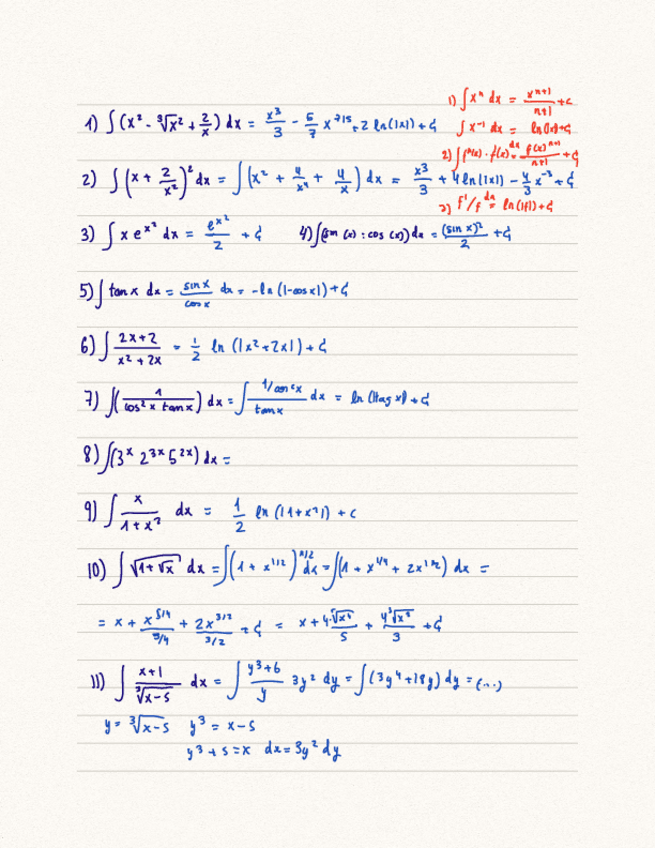 1) ∫ xⁿ dx = xⁿ⁺¹/(n+1) + c
1) ∫(x² - ∛x² + 2/x) dx = x³/3 - 5/7 x^(7/5) + 2 ln(|x|) + C
∫ x⁻¹ dx = ln(|x|)+C
2) ∫ fⁿ(x) · f(x) dx = f(x)ⁿ⁺¹/(n+1) + C
2) ∫(x + 2/x²)² dx = ∫(x² + 4/x⁴ + 4/x) dx = x³/3 + 4 ln(|x|) - 4/3 x⁻³ + C
3) f'/f dx = ln(|f|) + C
3) ∫ x e^(x²) dx = e^(x²)/2 + C 4) ∫(sin (x) · cos (x)) dx = (sin x)²/2 + C
5) ∫ tan x dx = sin x/cos x dx = -ln (|-cos x|) + C
6) ∫ (2x+2)/(x² + 2x) = 1/2 ln (|x²+2x|) + C
7) ∫(1/(cos² x tan x)) dx = ∫ (1/cos² x)/tan x dx = ln (|tag x|) + C
8) ∫(3ˣ 2³ˣ 5²ˣ) dx =
9) ∫ x/(1+x²) dx = 1/2 ln (|1+x²|) + c
10) ∫ √(1+√x) dx = ∫(1 + x^(1/2))^(1/2) dx = ∫(1 + x^(1/4) + 2x^(1/2)) dx =
= x + x^(5/4)/(5/4) + 2x^(3/2)/(3/2) + C = x + 4·⁵√x⁴/5 + 4³√x³/3 + C
11) ∫ (x+1)/∛(x-5) dx = ∫ (y³+6)/y 3y² dy = ∫(3y⁴+18y) dy = (...)
y = ∛(x-5) y³ = x-5
y³+5=x dx=3y² dy